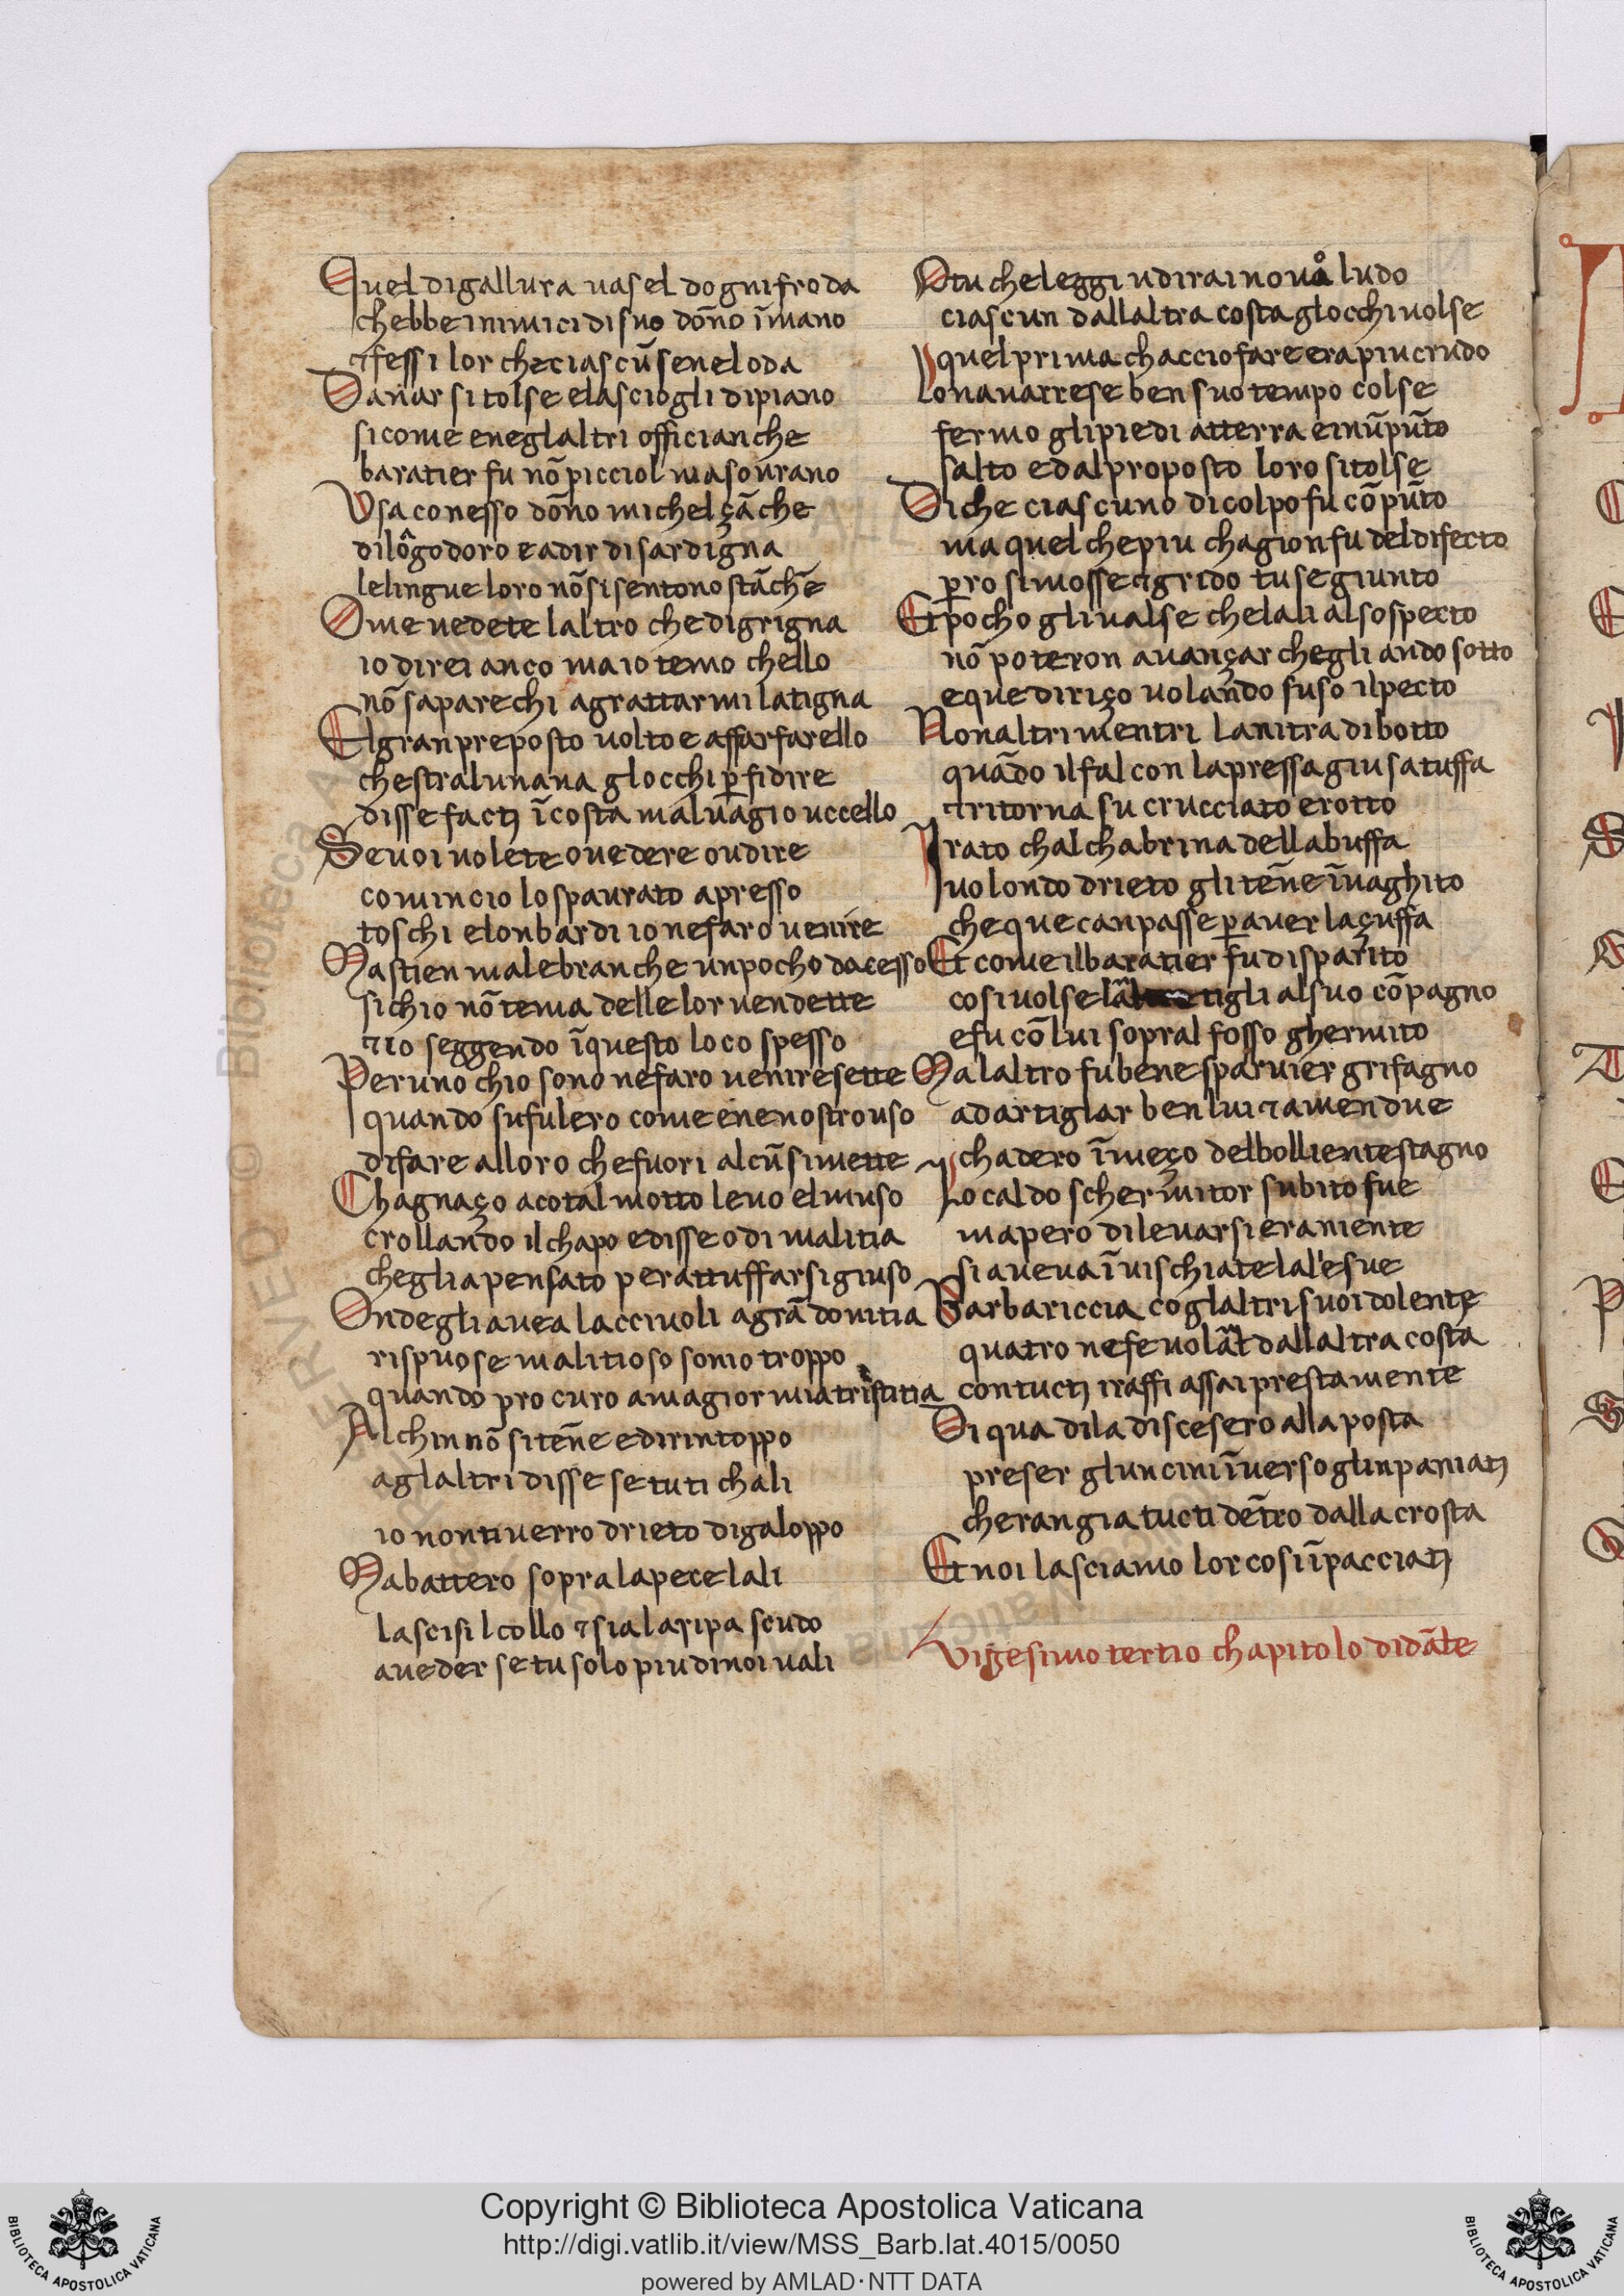 Quel digallura vasel dognifroda
chebbe inimici di suo dōno īmano
⁊fessi lor checiascū seneloda
Danar si tolse elasciogli dipiano
sicome eneglaltri officianche
baratier fu nō picciol masourano
Usa conesso dōno michel çāche
dilōgodoro eadir disardigna
lelingue loro nō si sentono stāche
Ome vedete laltro che digrigna
io direi anco maio temo chello
nō saparechi agrattarmi latigna
El gran preposto volto e affarfarello
chestralunana glocchi ꝑfidire
disse factj īcosta malvagio uccello
Sevoi volete ovedere oudire
comincio lo spaurato apresso
toschi elonbardi io nefaro venire
Mastien malebranche unpocho dacesso
sichio nō tema delle lor vendette
⁊io seggendo īquesto loco spesso
Per uno chio sono nefaro venire sette
quando sufulero come ene nostro uso
difare alloro chefuori alcū simette
Chagnaço acotal motto levo elmuso
crollando il chapo edisse odi malitia
chegliapensato perattuffarsi giuso
Ondegliavea laccivoli agrā donitia
rispuose malitioso sonio troppo
quando procuro amagior miatristitia
Alchin nō si tēne edirintoppo
aglaltri disse setuti chali
io nontiverro drieto digaloppo
Mabattero sopralapecelali
lascisil collo ⁊sialaripa scudo
aveder setu solo piu dinoi vali
O tu che leggi udirai novo ludo
ciascun dallaltra costa glocchi volse
quel prima chacciofare era piu crudo
Lo navarrese ben suo tempo colse
fermo glipiedi atterra einūpūto
salto edalproposto loro sitolse
Di che ciascuno dicolpo fu cōpūto
ma quel chepiu chagion fu deldifecto
ꝑro simosse ⁊grido tu se giunto
Et pocho glivalse chelali alsospecto
nō poteron avançar chegli ando sotto
eque diriço volando suso ilpecto
Non altrimentri lanitra dibotto
quādo il falcon lapressa giu satuffa
⁊ritorna su crucciato erotto
Irato chalchabrina dellabuffa
volondo drieto gli tēne īvaghito
cheque canpasse ꝑaver laçuffa
Et come ilbaratier fu disparito
cosi volse lā tigli alsuo cōpagno
efu cō lui sopral fosso ghermito
Ma laltro fu bene sparvier grifagno
adartiglar ben lui ⁊amendue
chadero īmeço delbolliente stagno
Lo caldo schermitor subito fue
mapero dilevarsi eraniente
siaveva īvischiate lale sue
Barbariccia coglaltri suoi dolente
quatro nefevolāt dallaltra costa
contuctj iraffi assai prestamente
Di qua dila discesero alla posta
preser gluncini īverso glinpaniatj
cherangia tucti dētro dalla crosta
Et noi lasciamo lor cosi īpacciatj
Vigesimo tertio chapitolo didāte
Copyright © Biblioteca Apostolica Vaticana
http://digi.vatlib.it/view/MSS_Barb.lat.4015/0050
powered by AMLAD·NTT DATA
BIBLIOTECA APOSTOLICA VATICANA
BIBLIOTECA APOSTOLICA VATICANA